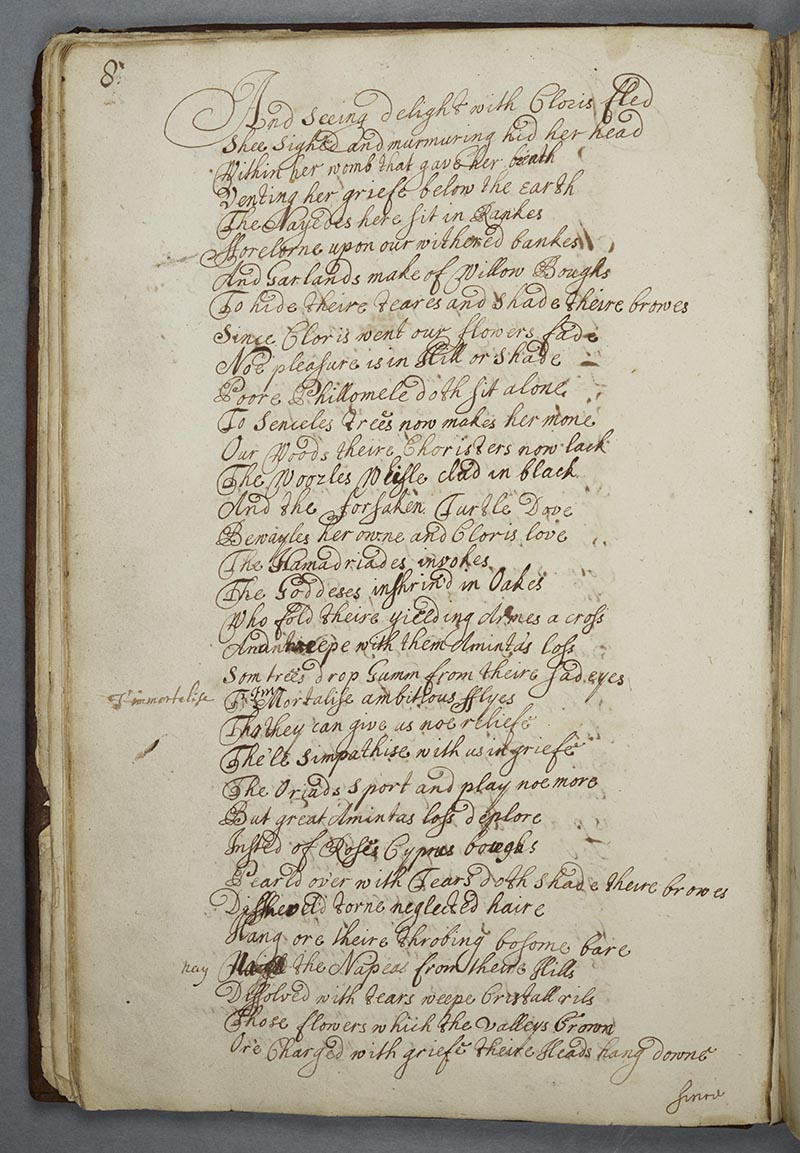 8
And seeing delight with Cloris fled
Shee sighed and murmuring hid her head
Within her womb that gave her birath
Venting her griefe below the earth
The Nayedes here sit in Rankes
Fforelorne upon our withered bankes
And Garlands make of Willow Boughs
To hide theire teares and shade theire browes
Since Cloris went our flowers fade
Noe pleasure is in Hill or shade
Poore Phillomele doth sit alone
To senceles trees now makes her mone
Our Woods theire Choristers now lack
The Woozles Whisle clad in black
And the forsaken Turtle Dove
Bewayles her owne and Cloris love
The Hamadriades invokes
The Goddeses inshrin'd in Oakes
Who fold theire yielding Armes a cross
And weepe with them Aminta's loss
Som trees drop Gumm from theire sad eyes
T'immortalise
T'imMortalise ambitious fflyes
Tho they can give us noe reliefe
The'le simpathise with us in griefe
The Oriads sport and play noe more
But great Amintas loss deplore
Insted of Roses Cyprus boughs
Pearld over with Tears doth shade theire browes
Disheveld torne neglected haire
Hang ore theire throbing bosome bare
nay
the Napeas from theire Hills
Dissolved with tears weepe Cristall rils
Those flowers which the valleys Crown
Ore Charged with griefe theire Heads hang downe
since